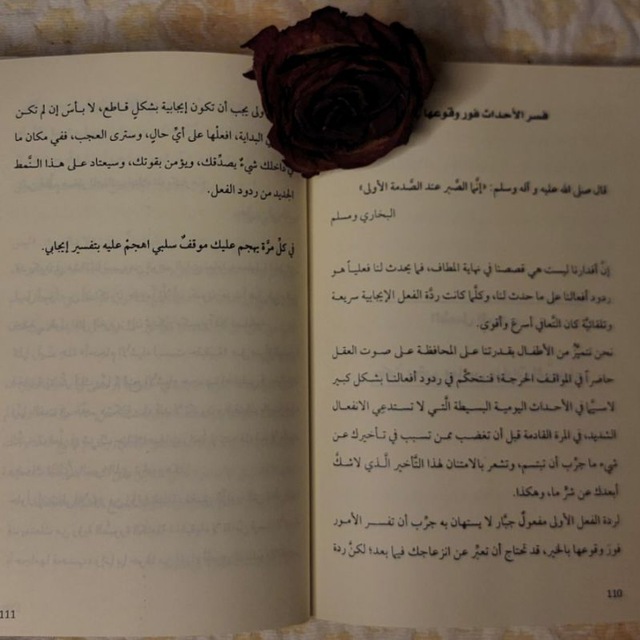 فسر الأحداث فور وقوعها
قال صلى الله عليه و آله وسلم: «إنَّما الصَّبر عند الصَّدمة الأولى»
البخاري ومسلم
إنَّ أقدارنا ليست هي قصصنا في نهاية المطاف، فما يحدث لنا فعلياً هو
ردود أفعالنا على ما حدث لنا، وكلَّما كانت ردَّة الفعل الإيجابية سريعة
وتلقائيَّة كان التَّعافي أسرع وأقوى.
نحن نتميَّز عن الأطفال بقدرتنا على المحافظة على صوت العقل
حاضراً في المواقف الحرجة؛ فنتحكَّم في ردود أفعالنا بشكل كبير
لاسيَّما في الأحداث اليومية البسيطة الَّتي لا تستدعي الانفعال
الشديد، في المرة القادمة قبل أن تغضب ممن تسبب في تأخيرك عن
شيء ما جرِّب أن تبتسم، وتشعر بالامتنان لهذا التَّأخير الَّذي لاشكَّ
أبعدك عن شرٍّ ما، وهكذا.
لردة الفعل الأولى مفعولٌ جبَّار لا يستهان به جرِّب أن تفسر الأمور
فورَ وقوعها بالخير، قد تحتاج أن تعبِّر عن انزعاجك فيما بعد؛ لكنَّ ردة
110
يجب أن تكون إيجابية بشكلٍ قاطع، لا بأسَ إن لم تكن
البداية، افعلْها على أيِّ حالٍ، وسترى العجب، ففي مكان ما
داخلك شيءٌ يصدِّقك، ويؤمن بقوتك، وسيعتاد على هذا النَّمط
الجديد من ردود الفعل.
في كلِّ مرَّة يهجم عليك موقفٌ سلبي اهجمْ عليه بتفسير إيجابي.
111